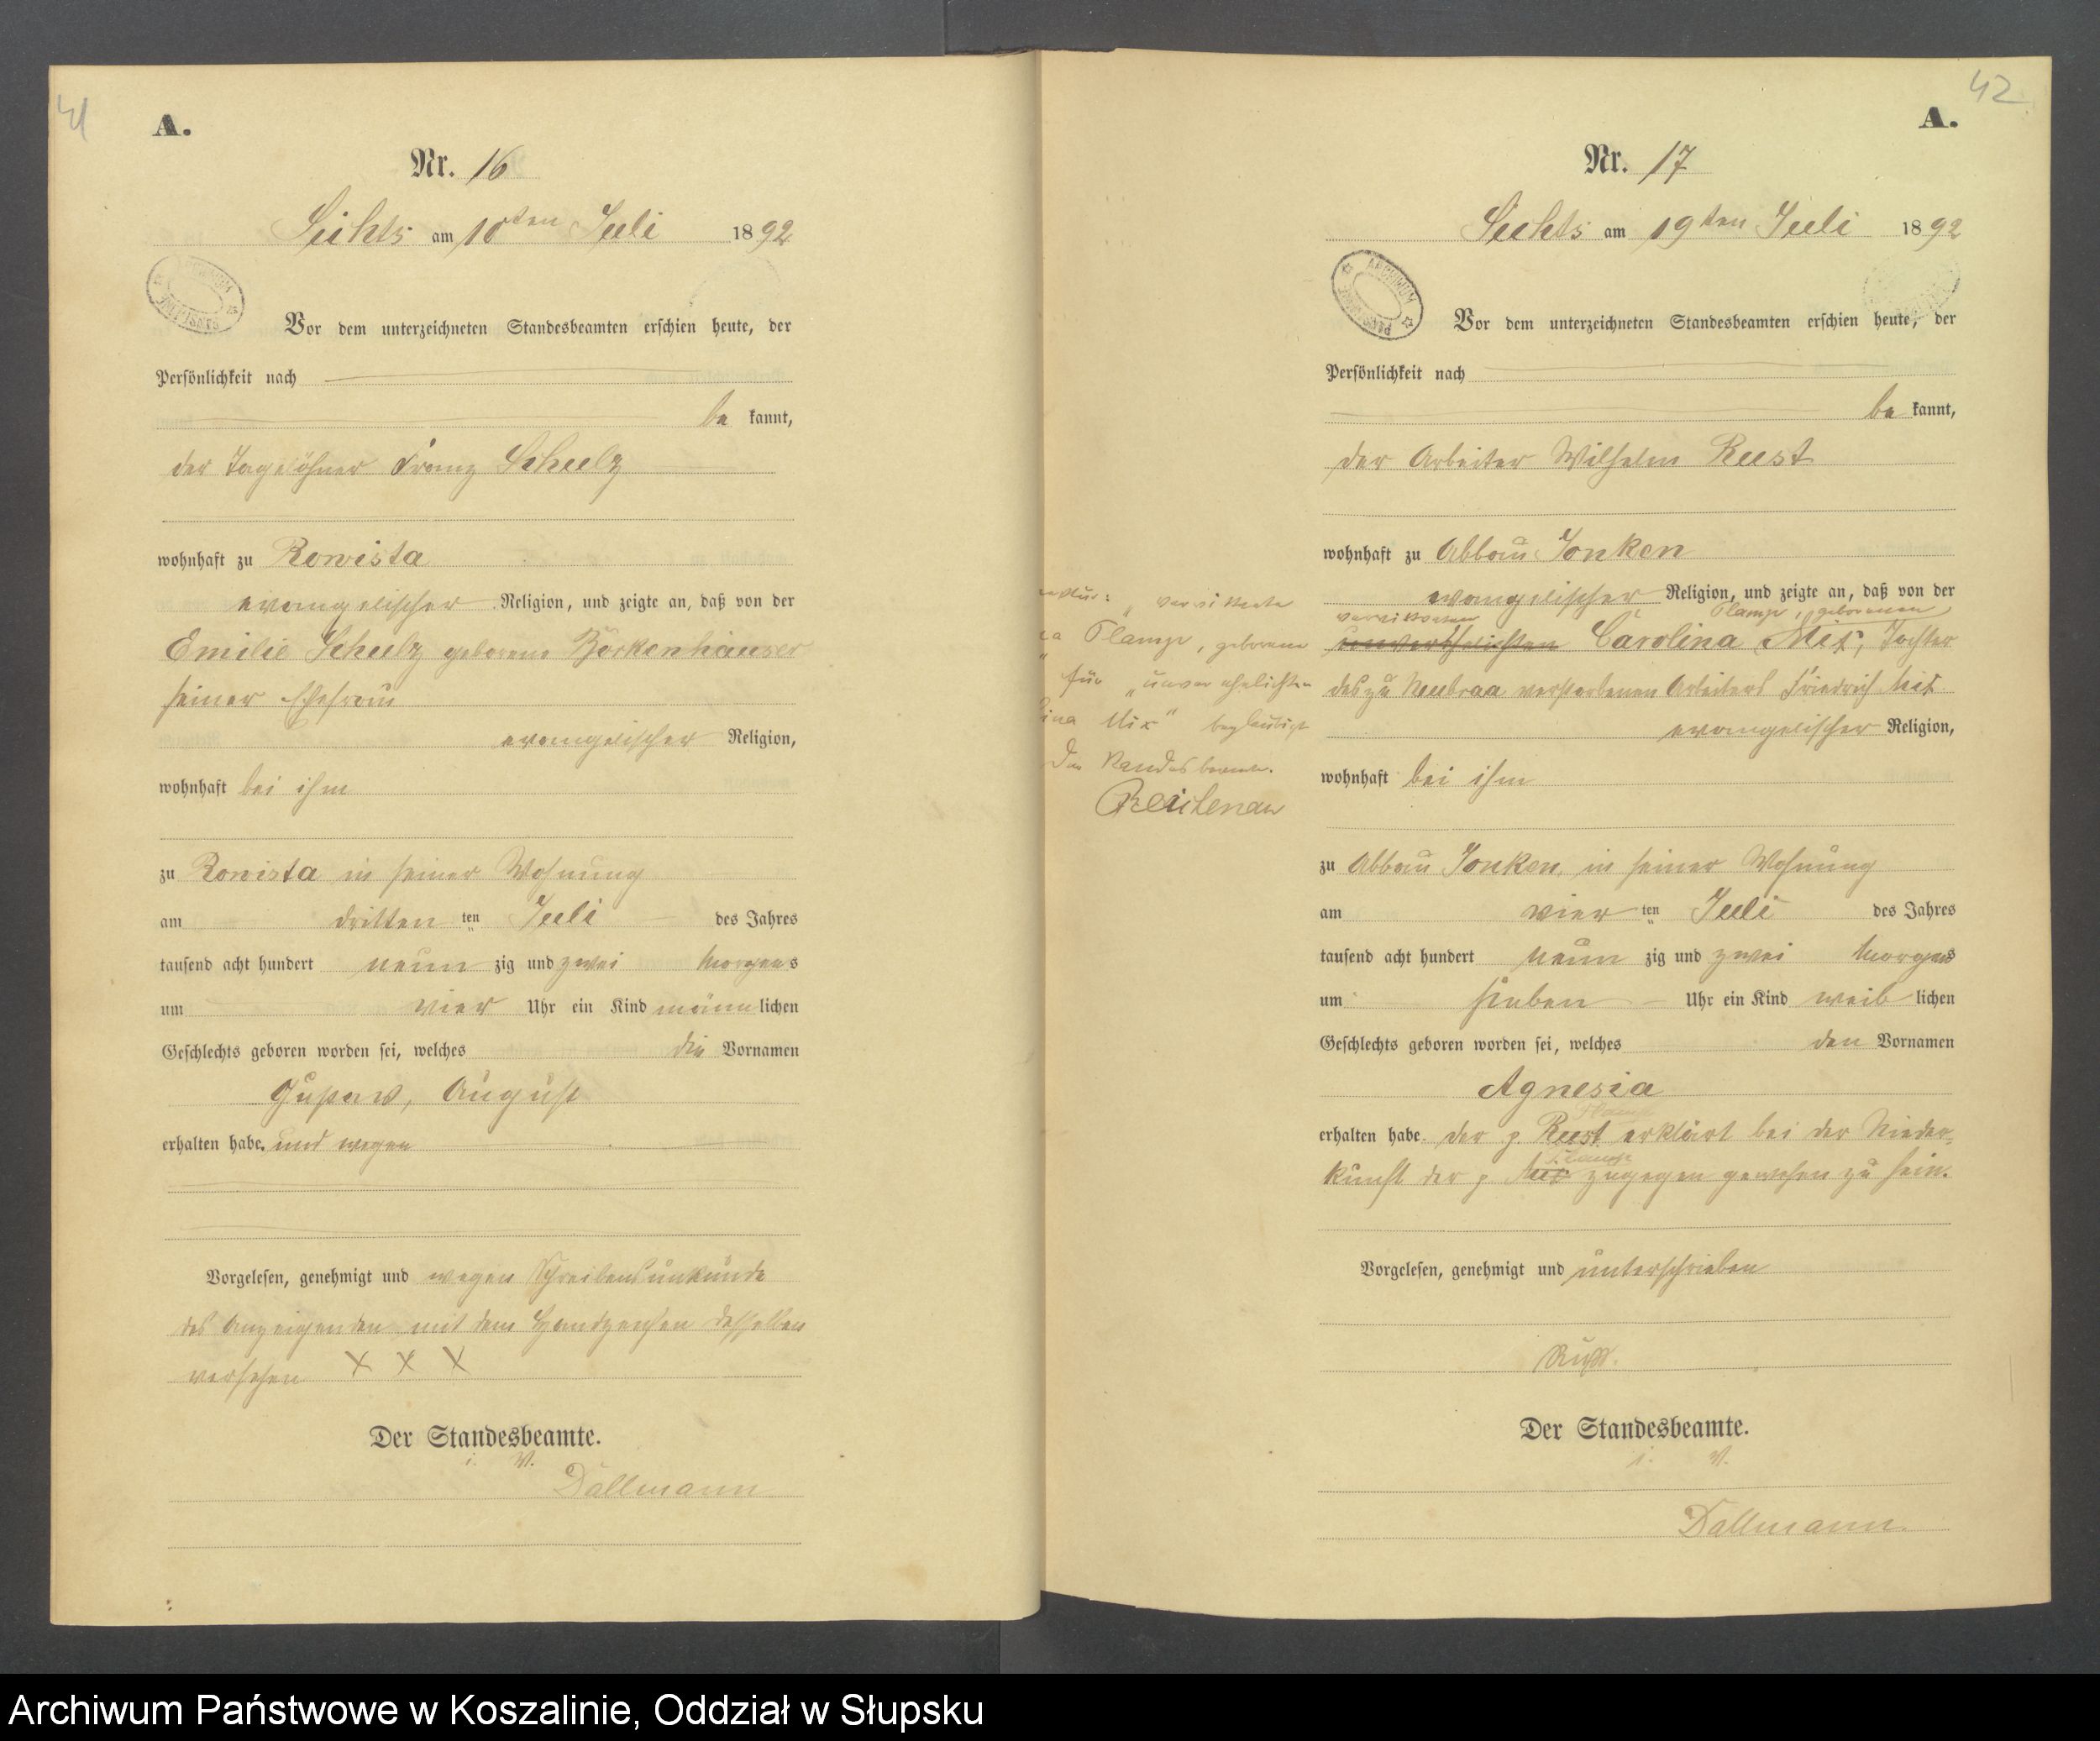 41
A.
Nr. 16
am 10ten Juli 1892
Vor dem unterzeichneten Standesbeamten erschien heute, der
Persönlichkeit nach
be kannt,
der Tagelöhner Franz Schulz
wohnhaft zu Rowista
evangelischer Religion, und zeigte an, daß von der
Emilie Schulz geborene Borkenhäuser
seiner Ehefrau
evangelischer Religion,
wohnhaft bei ihm
zu Rowista in seiner Wohnung
am dritten ten Juli des Jahres
tausend acht hundert neun zig und zwei Morgens
um vier Uhr ein Kind männlichen
Geschlechts geboren worden sei, welches die Vornamen
Gustav, August
erhalten habe. und wegen
Vorgelesen, genehmigt und wegen Schreibensunkunde
des Anzeigenden mit dem Handzeichen desselben
versehen X X X
Der Standesbeamte.
i. V.
Dallmann
42
A.
Nr. 17
am 19ten Juli 1892
ARCHIWUM
Vor dem unterzeichneten Standesbeamten erschien heute, der
Persönlichkeit nach
be kannt,
der Arbeiter Wilhelm Rust
wohnhaft zu Abbau Jonken
evangelischer Religion, und zeigte an, daß von der
verwittweten Plampe, geborenen
unverehelichten Carolina Mix, Tochter
des zu verstorbenen Arbeiters Friedrich Mix
evangelischer Religion,
wohnhaft bei ihm
zu Abbau Jonken, in seiner Wohnung
am vier ten Juli des Jahres
tausend acht hundert neun zig und zwei Morgens
um sieben Uhr ein Kind weib lichen
Geschlechts geboren worden sei, welches den Vornamen
Agnesia
erhalten habe. der p. Rust erklärt bei der Nieder-
kunft der p. Mix zugegen gewesen zu sein.
Vorgelesen, genehmigt und unterschrieben
Rust.
Der Standesbeamte.
i. V.
Dallmann.
verwittwete
Plampe, geborene
für "unverehelichten
Mix" beglaubigt
Der Standesbeamte.
Reichenau
Archiwum Państwowe w Koszalinie, Oddział w Słupsku